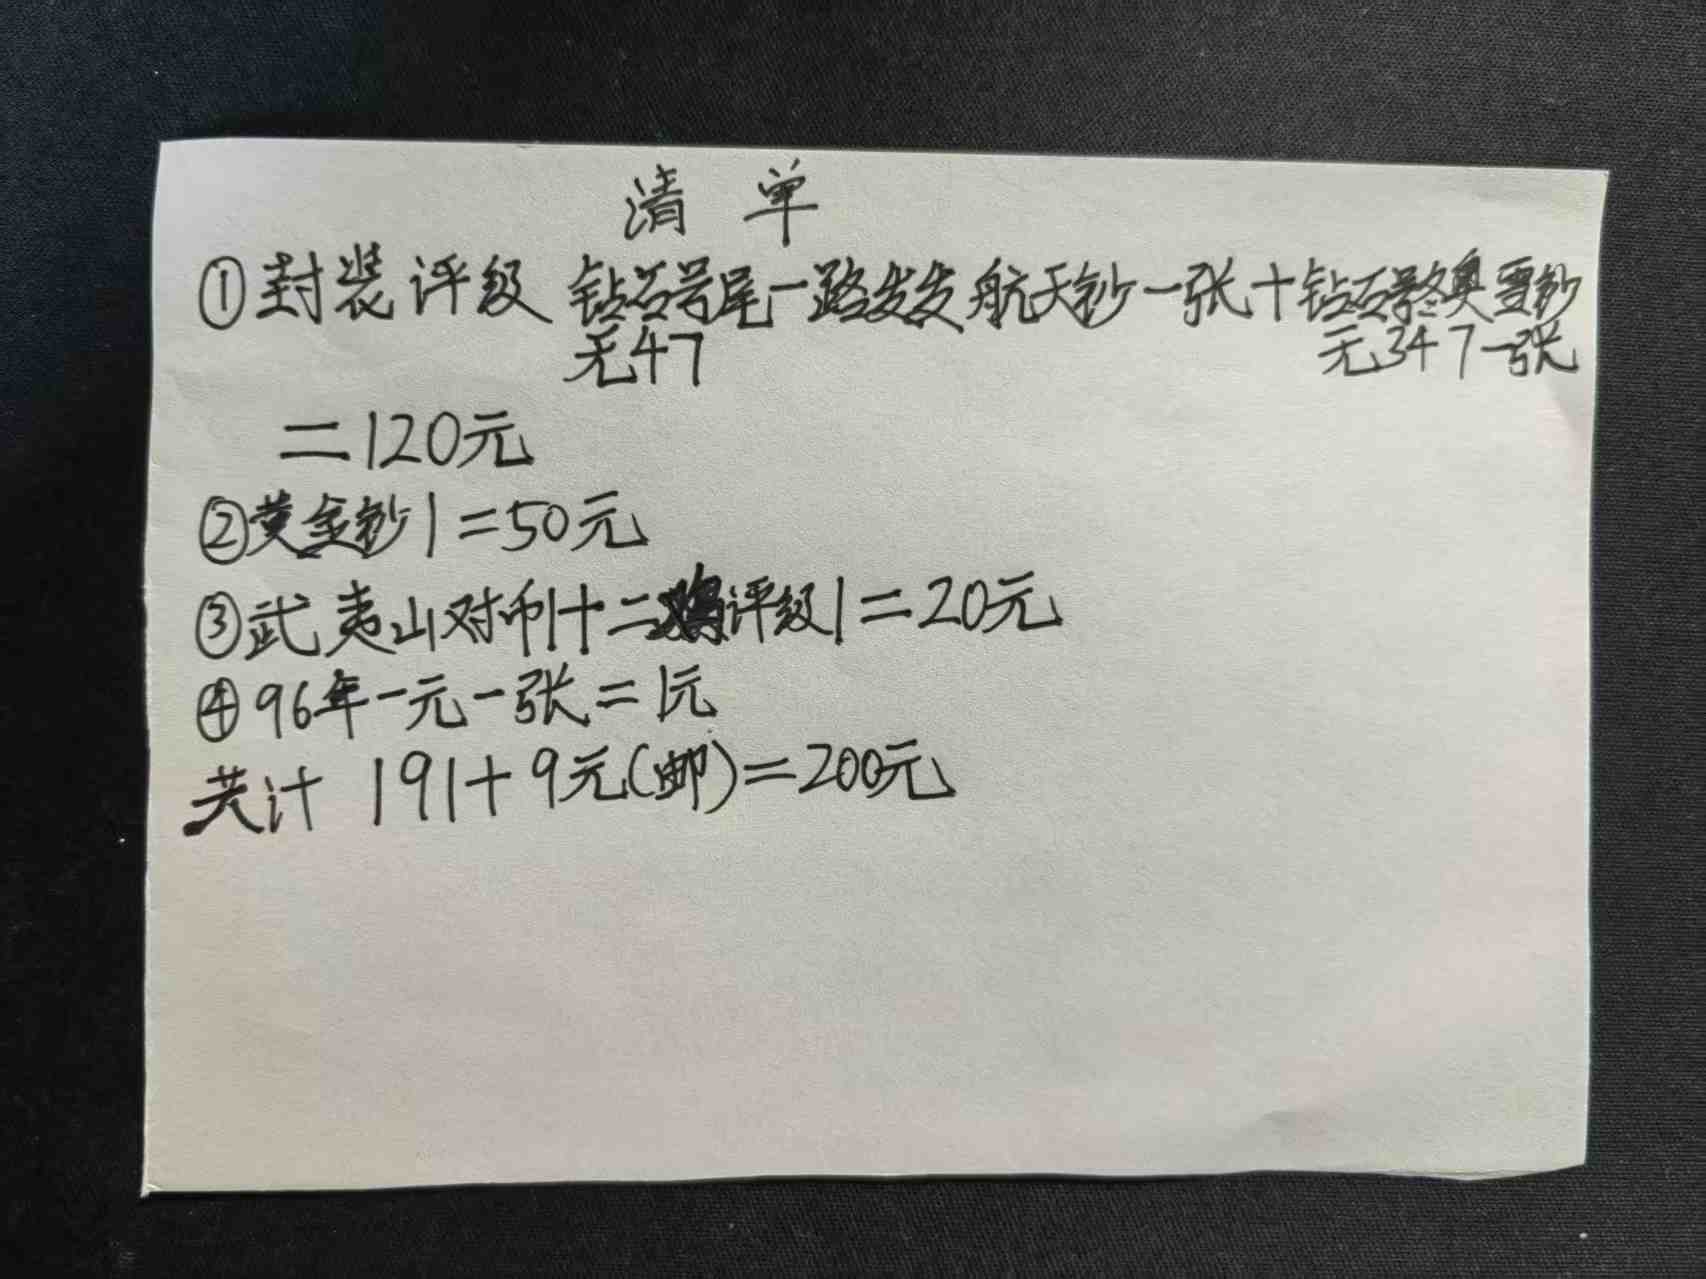 清单
①封装评级 钻石号尾一路发发航天钞一张+钻石号冬奥雪钞
无47 无347一张
=120元
②黄金钞1=50元
③武夷山对币1+二鸡评级1=20元
④96年一元一张=1元
共计 191+9元(邮)=200元